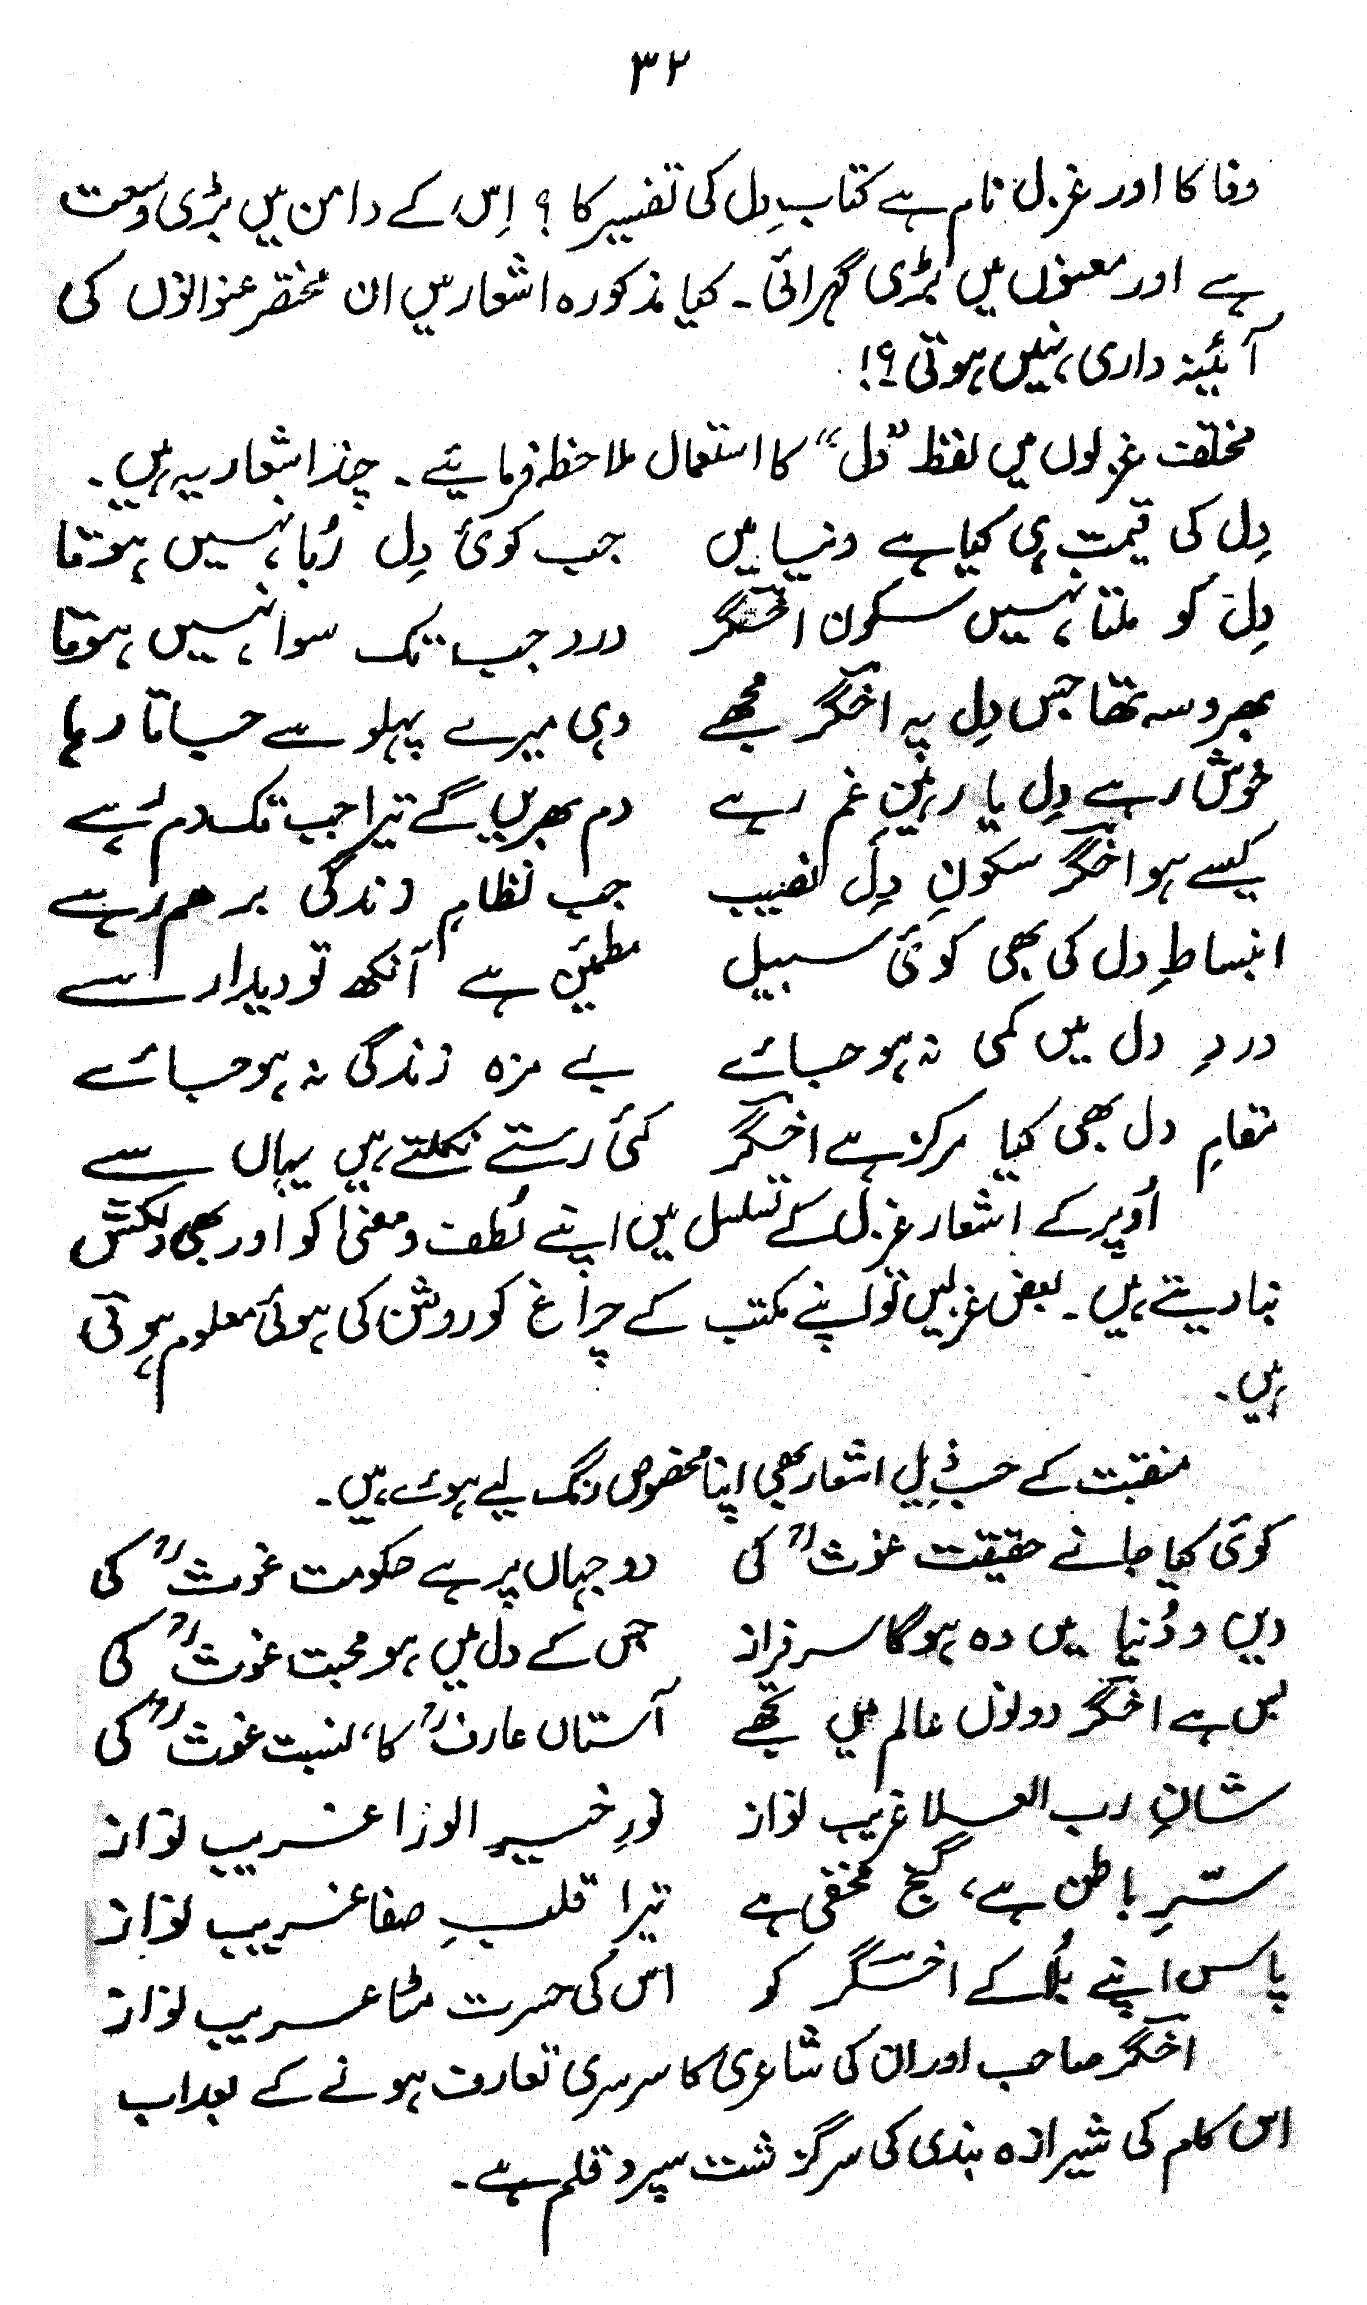 ۳۲
وفا کا اور غزل نام ہے کتابِ دل کی تفسیر کا ؟ اِس کے دامن میں بڑی وسعت
ہے اور معنوں میں بڑی گہرائی۔ کیا مذکورہ اشعار میں ان مختصر عنوانوں کی
آئینہ داری نہیں ہوتی ؟!
مختلف غزلوں میں لفظ "دل" کا استعمال ملاحظہ فرمائیے۔ چند اشعار یہ ہیں۔
دِل کی قیمت ہی کیا ہے دنیا میں جب کوئی دِل رُبا نہیں ہوتا
دِل کو ملتا نہیں سکون اخگر درد جب تک سوا نہیں ہوتا
بھروسہ تھا جس دِل پہ اخگر مجھے وہی میرے پہلو سے جاتا رہا
خوش رہے دِل یا رہینِ غم رہے دم بھریں گے تیرا جب تک دم رہے
کیسے ہو اخگر سکونِ دِل نصیب جب نظامِ زندگی برہم رہے
انبساطِ دل کی بھی کوئی سبیل مطمئن ہے آنکھ تو دیدار سے
دردِ دل میں کمی نہ ہو جائے بے مزہ زندگی نہ ہو جائے
مقامِ دل بھی کیا مرکز ہے اخگر کئی رستے نکلتے ہیں یہاں سے
اُوپر کے اشعار غزل کے تسلسل میں اپنے لُطف و معنیٰ کو اور بھی دلکش
بنا دیتے ہیں۔ بعض غزلیں تو اپنے مکتب کے چراغ کو روشن کی ہوئی معلوم ہوتی
ہیں۔
منقبت کے حسبِ ذیل اشعار بھی اپنا مخصوص رنگ لیے ہوئے ہیں۔
کوئی کیا جانے حقیقت غوثؒ کی دو جہاں پر ہے حکومت غوثؒ کی
دیں و دُنیا میں وہ ہوگا سرفراز جس کے دل میں ہو محبت غوثؒ کی
بس ہے اخگر دونوں عالم میں تجھے آستاں عارفؒ کا، نسبت غوثؒ کی
شانِ رب العلا غریب نواز نورِ خیر الورٰا غریب نواز
سّرِ باطن ہے، گنجِ مخفی ہے تیرا قلبِ صفا غریب نواز
پاس اپنے بُلا کے اخگر کو اس کی حسرت مٹا غریب نواز
اخگر صاحب اور ان کی شاعری کا سرسری تعارف ہونے کے بعد اب
اس کام کی شیرازہ بندی کی سرگزشت سپردِ قلم ہے۔